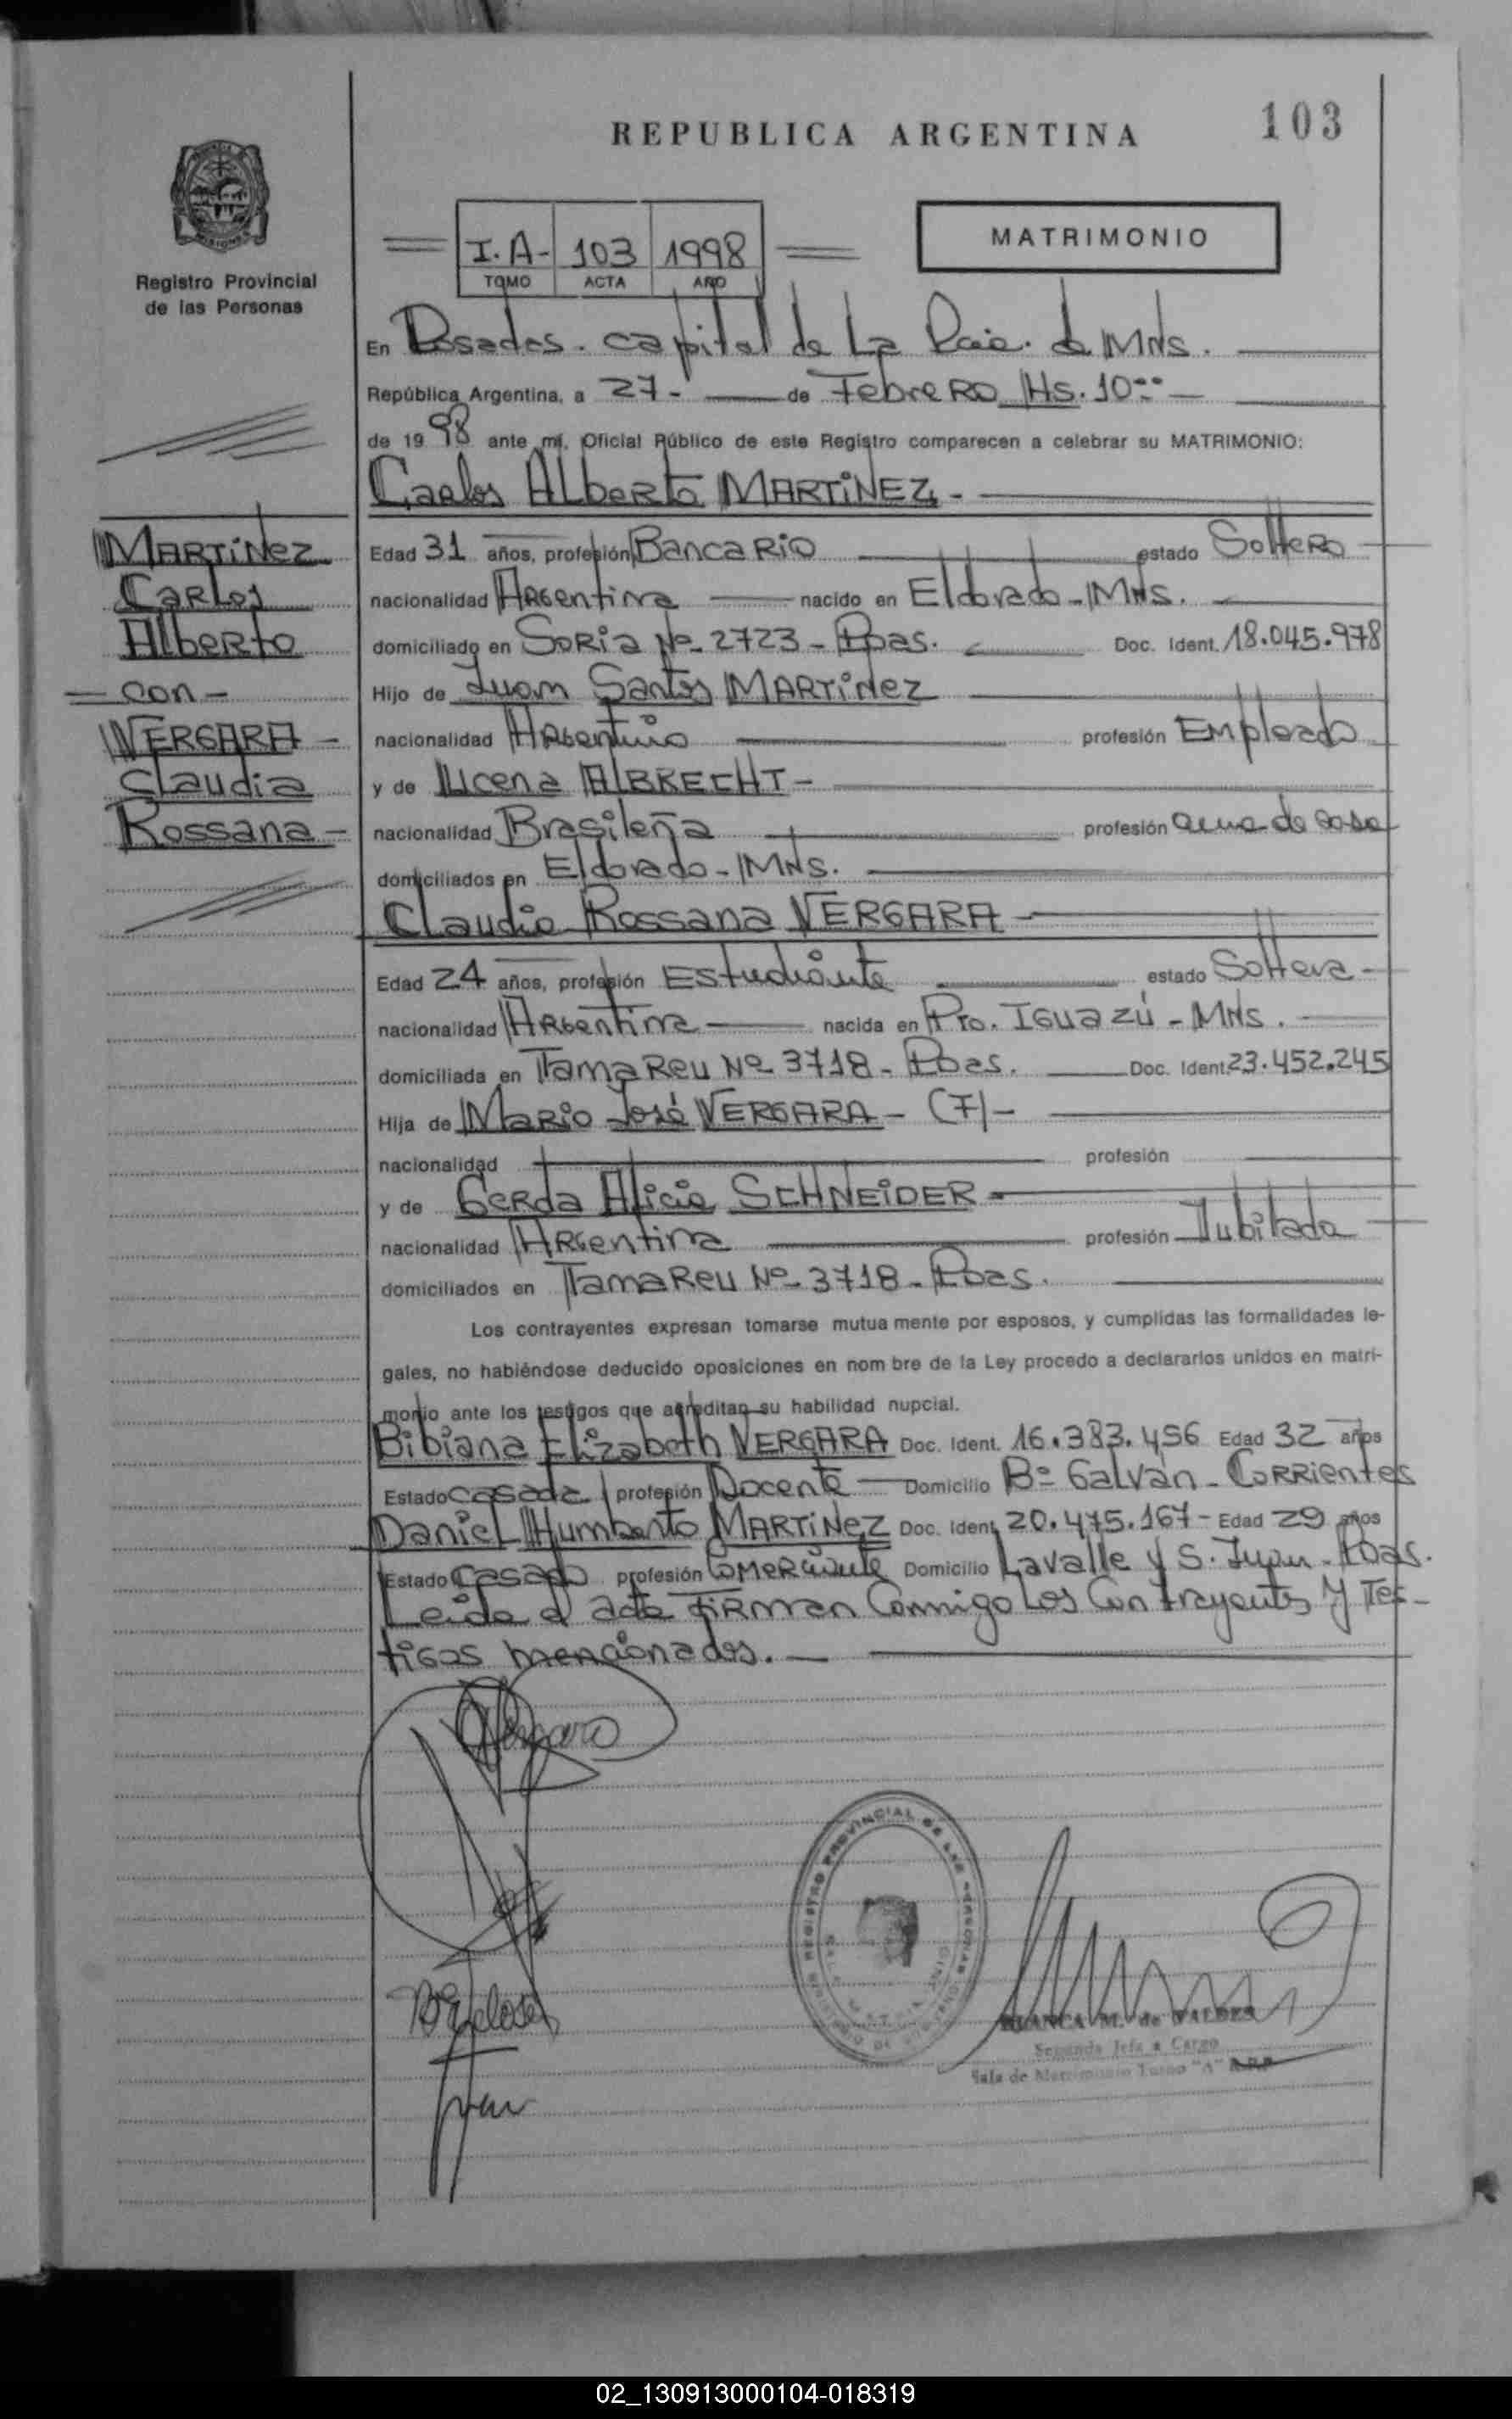 REPUBLICA ARGENTINA
103
Registro Provincial
de las Personas
I.A- 103 1998
TOMO ACTA AÑO
MATRIMONIO
En Posadas. capital de La Pcia. de MNs.
República Argentina, a 27- de Febrero Hs. 10
de 1998 ante mí, Oficial Público de este Registro comparecen a celebrar su MATRIMONIO:
Carlos Alberto MARTINEZ -
MARTINEZ
Carlos
Alberto
- con -
VERGARA -
Claudia
Rossana -
Edad 31 años, profesión Bancario estado Soltero
nacionalidad Argentina nacido en Eldorado - MNs.
domiciliado en Soria Nº 2723 - Pdas. Doc. Ident. 18.045.978
Hijo de Juan Santos MARTINEZ
nacionalidad Argentino profesión Empleado
y de Ilcena ALBRECHT -
nacionalidad Brasileña profesión ama de casa
domiciliados en Eldorado - MNs.
Claudia Rossana VERGARA -
Edad 24 años, profesión Estudiante estado Soltera -
nacionalidad Argentina nacida en Pto. Iguazú - MNs.
domiciliada en TamaReu Nº 3718 - Pdas. Doc. Ident. 23.452.245
Hija de Mario José VERGARA - (F) -
nacionalidad profesión
y de Gerda Alicia SCHNEIDER -
nacionalidad Argentina profesión Jubilada
domiciliados en TamaReu Nº 3718 - Pdas.
Los contrayentes expresan tomarse mutua mente por esposos, y cumplidas las formalidades le-
gales, no habiéndose deducido oposiciones en nom bre de la Ley procedo a declararlos unidos en matri-
monio ante los testigos que acreditan su habilidad nupcial.
Bibiana Elizabeth VERGARA Doc. Ident. 16.383.456 Edad 32 años
Estado casada profesión Docente Domicilio Bº Galván - Corrientes
Daniel Humberto MARTINEZ Doc. Ident. 20.475.167 - Edad 29 años
Estado Casado profesión Comerciante Domicilio Lavalle y S. Juan - Pdas.
Leida el acta firman Conmigo Los Contrayentes y Tes-
tigos mencionados.
REGISTRO PROVINCIAL DE LAS PERSONAS
BLANCA M. de VALDEZ
Segunda Jefa a Cargo
Sala de Matrimonio Turno "A" R.P.P
02_130913000104-018319